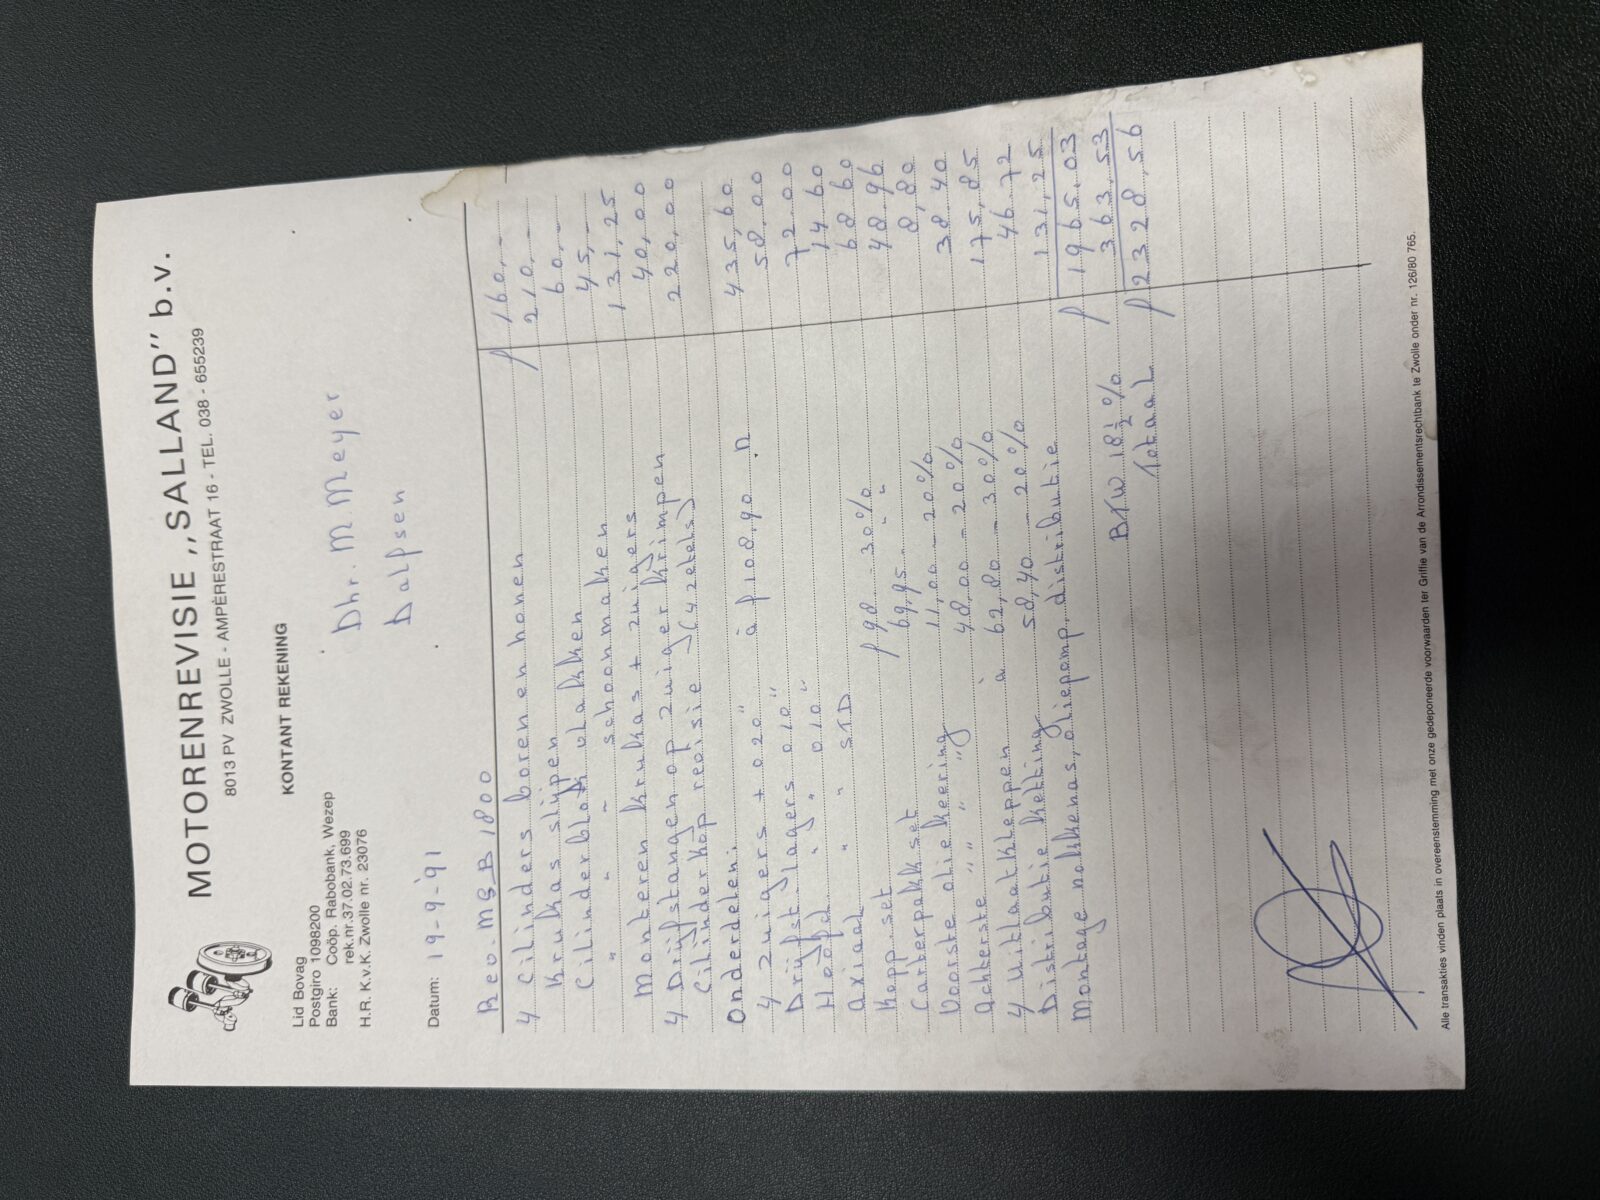 MOTORENREVISIE ,,SALLAND" b.v.
8013 PV ZWOLLE - AMPÈRESTRAAT 16 - TEL. 038 - 655239
KONTANT REKENING
Lid Bovag
Postgiro 1098200
Bank: Coöp. Rabobank, Wezep
rek.nr.37.02.73.699
H.R. K.v.K. Zwolle nr. 23076
Dhr. M. Meyer
Dalfsen
Datum: 19-9-'91
Rev. MGB 1800
4 Cilinders boren en honen f 160,-
Krukas slijpen 210,-
Cilinderblok vlakken 60,-
" - " - schoonmaken 45,-
Monteren krukas + zuigers 131,25
4 Drijfstangen op zuiger krimpen 40,00
Cilinderkop revisie (4 zetels) 220,00
Onderdelen:
4 zuigers + 020" à f 108,90 n 435,60
Drijfst lagers 010" 58,00
Hoofd " " 010" 72,00
Axiaal " " STD 14,60
Kopp set f 98 - 30% 68,60
Carterpakk set 69,95 - " " 48,96
Voorste olie keering 11,00 - 20% 8,80
Achterste " " " 48,00 - 20% 38,40
4 Uitlaatkleppen à 62,80 - 30% 175,85
Distributie ketting 58,40 - 20% 46,72
Montage nokkenas, oliepomp, distributie 131,25
f 1965,03
BTW 18½% f 363,53
Totaal f 2328,56
Alle transakties vinden plaats in overeenstemming met onze gedeponeerde voorwaarden ter Griffie van de Arrondissementsrechtbank te Zwolle onder nr. 126/80 765.